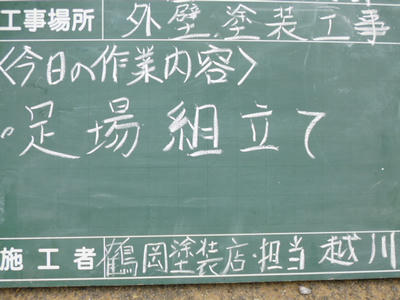 工事場所 外壁塗装工事
〈今日の作業内容〉
・足場組立て
施工者 鶴岡塗装店・担当 越川